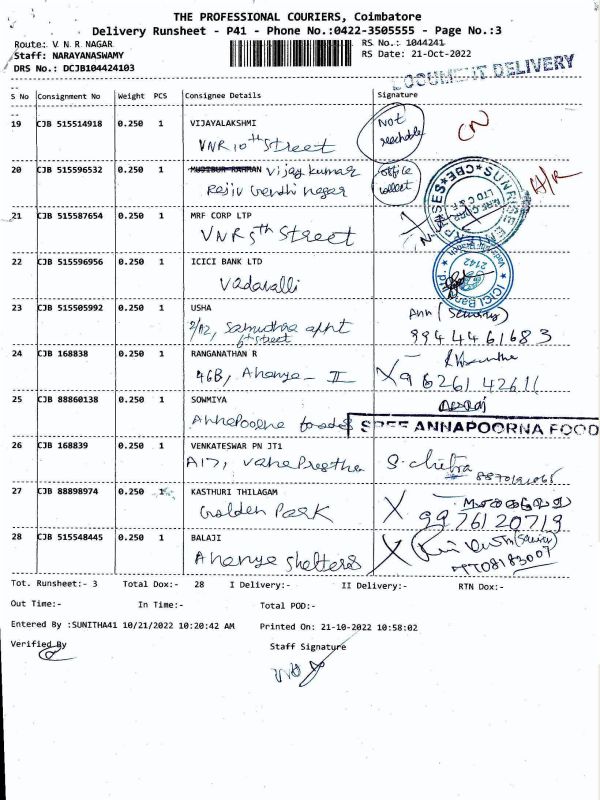 THE PROFESSIONAL COURIERS, Coimbatore
Delivery Runsheet - P41 - Phone No.:0422-3505555 - Page No.:3
Route: V. N. R. NAGAR RS No.: 1044241
Staff: NARAYANASWAMY RS Date: 21-Oct-2022
DRS No.: DCJB104424103
DOCUMENT DELIVERY
S No Consignment No Weight PCS Consignee Details Signature
19 CJB 515514918 0.250 1 VIJAYALAKSHMI Not
VNR 10th Street reachable CN
20 CJB 515596532 0.250 1 MUDIBUR RAHMAN Vijay kumar office
Rajiv Gandhi nagar collect A/R
21 CJB 515587654 0.250 1 MRF CORP LTP
VNR 5th Street
MRF CORP LTD C & F SUNRISE CBE
22 CJB 515596956 0.250 1 ICICI BANK LTD
Vadavalli
2142 ICICI Bank Ltd.
23 CJB 515505992 0.250 1 USHA
Samudhra appt 9944461683
6th street
24 CJB 168838 0.250 1 RANGANATHAN R
46B, Ananya - II X 9626142611
25 CJB 88860138 0.250 1 SOWMIYA
Annapoorna foods SREE ANNAPOORNA FOOD
26 CJB 168839 0.250 1 VENKATESWAR PN JT1
A17, Vanaprastha S. Chitra
27 CJB 88898974 0.250 1 KASTHURI THILAGAM
Golden Park X 9976120719
28 CJB 515548445 0.250 1 BALAJI
Ananya Shelters X
Tot. Runsheet:- 3 Total Dox:- 28 I Delivery:- II Delivery:- RTN Dox:-
Out Time:- In Time:- Total POD:-
Entered By :SUNITHA41 10/21/2022 10:20:42 AM Printed On: 21-10-2022 10:58:02
Verified By Staff Signature